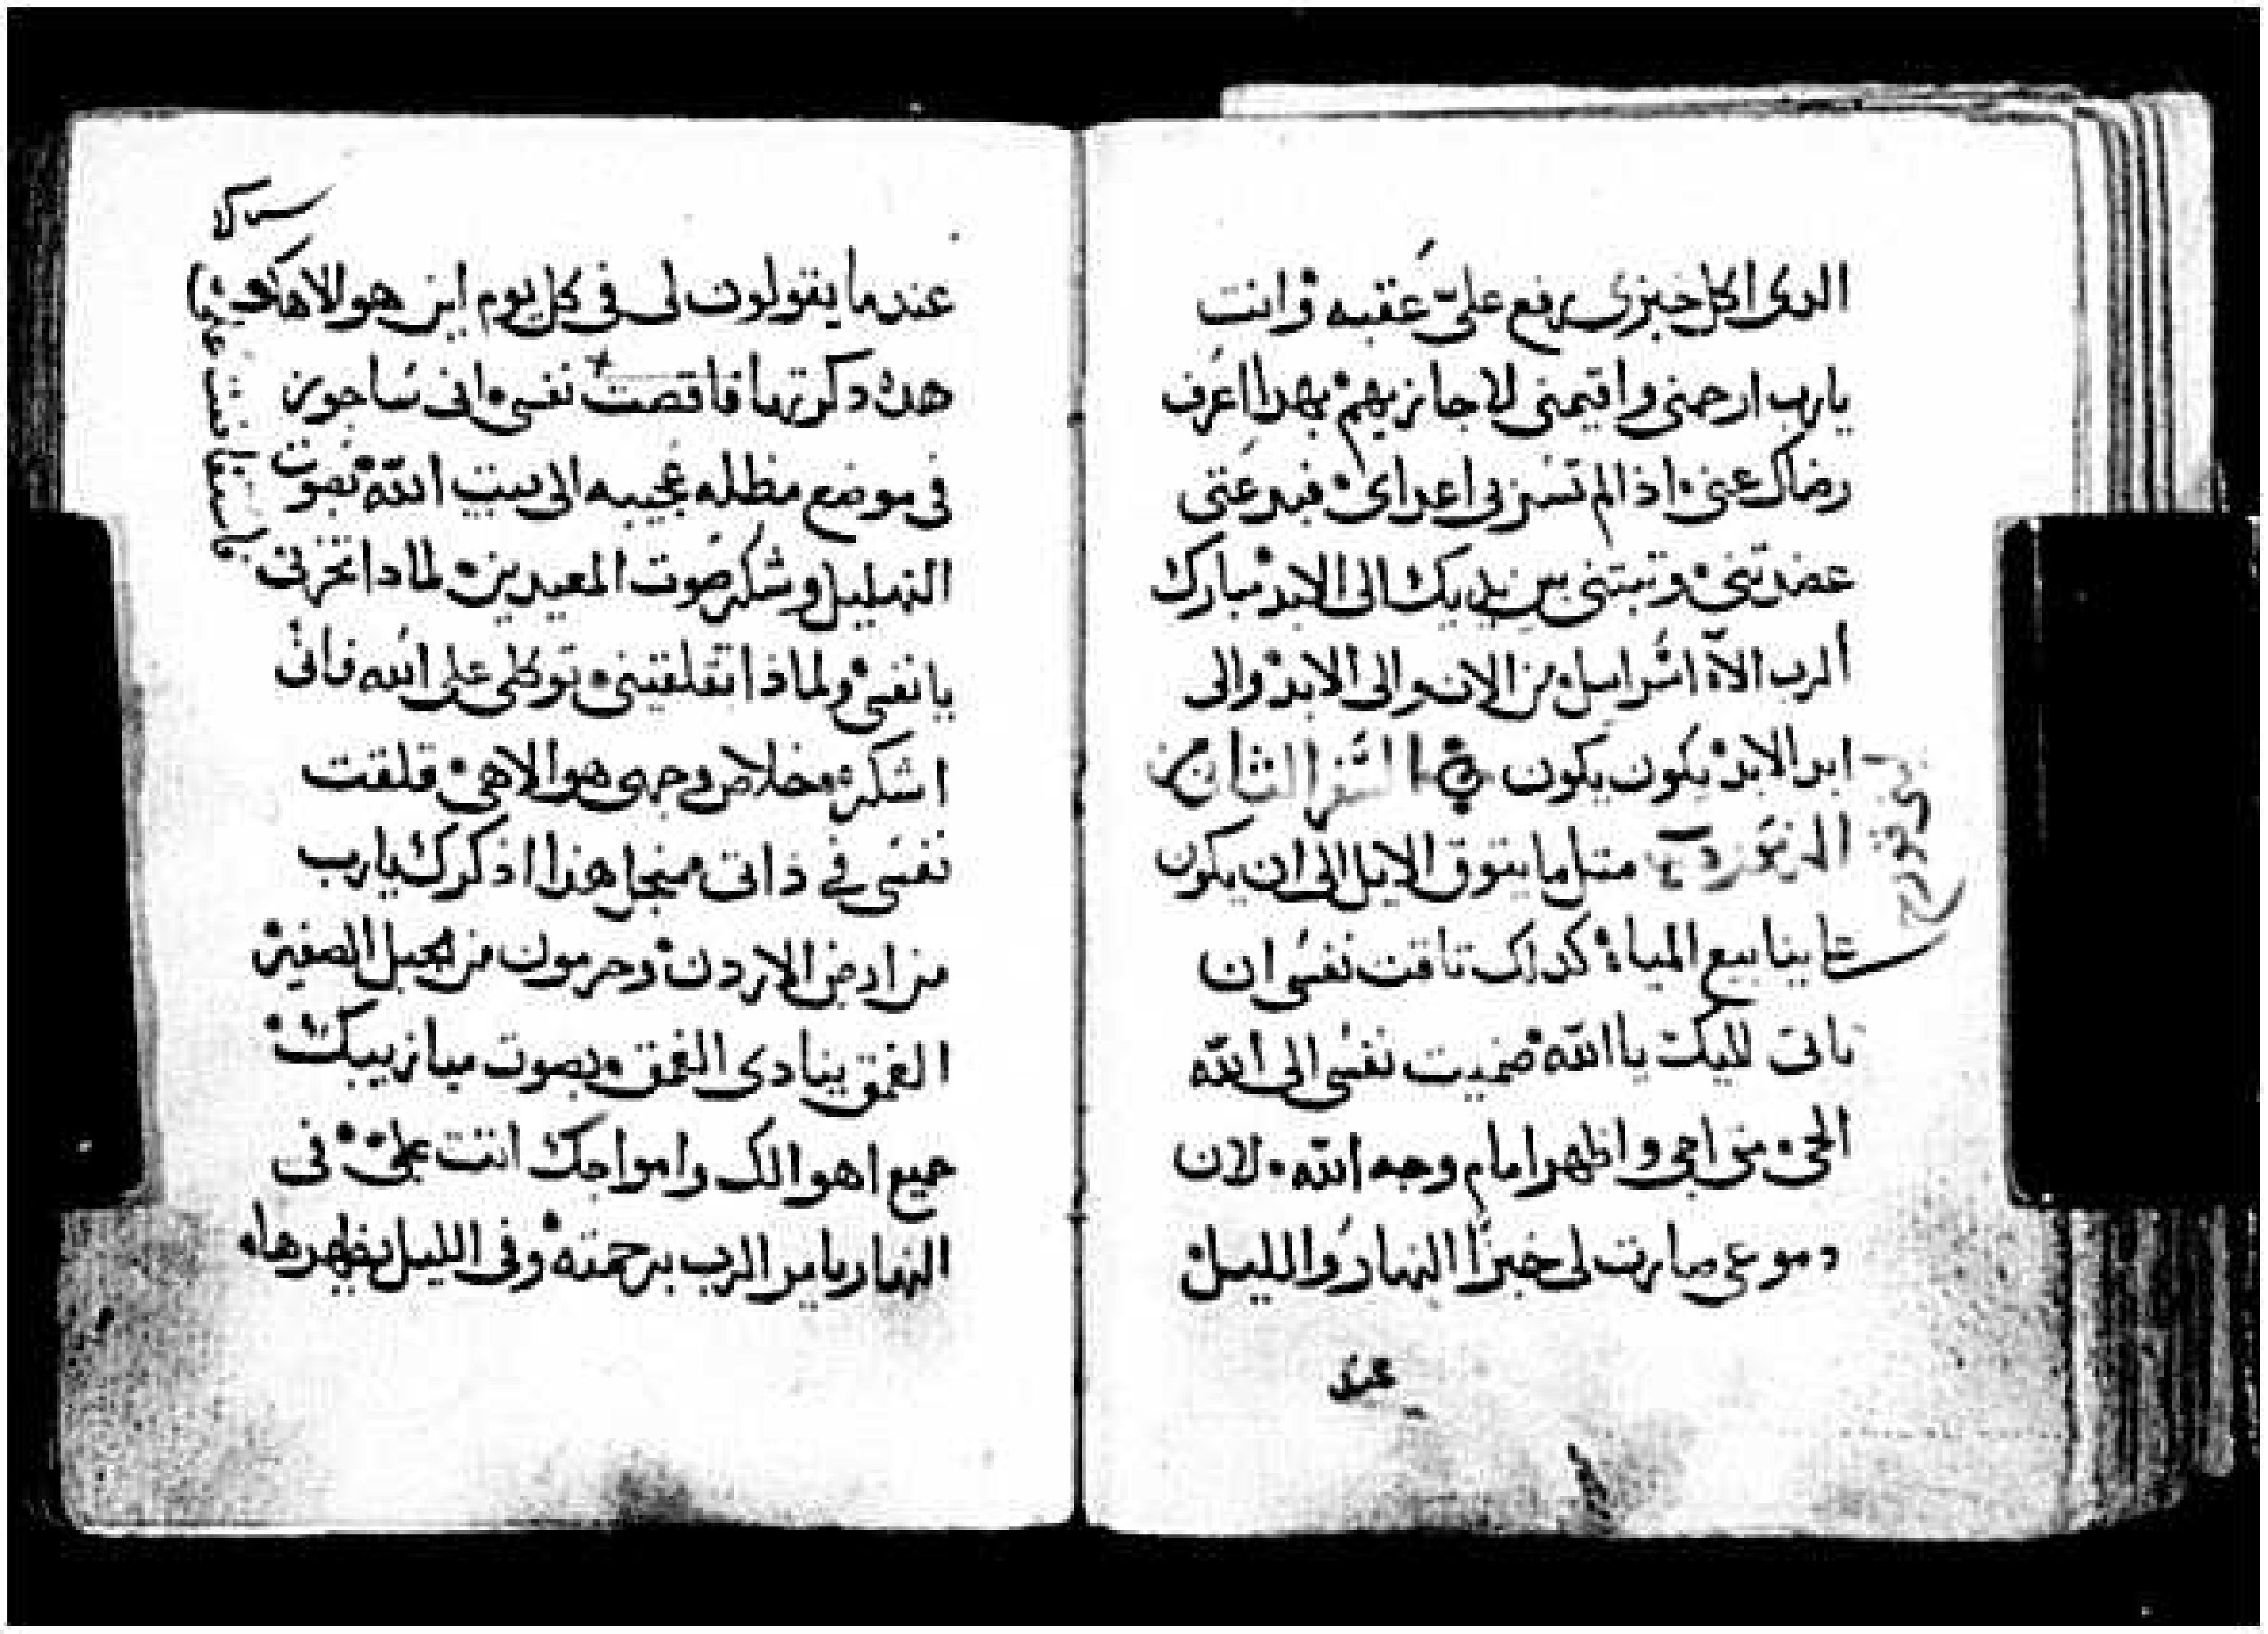 الدى اكل خبزى رفع علىّ عقبه وانت
يارب ارحمنى واقيمنى لاجازيهم بهدا اعرف
رضاك عنى اذ الم تسر بى اعداى فبدعتى
عضدتنى وتبتنى بين يديك الى الابد مبارك
الرب الاه اسراييل من الان والى الابد والى
ابد الابد يكون يكون السفر الثانى من
المزمور متل ما يتوق الايل الى ان يكون
على ينابيع المياه كدلك تاقت نفسى ان
تاتى اليك يا الله ضميت نفسى الى الله
الحى متى اجى واظهر امام وجه الله لان
دموعى صارت لى خبزا النهار والليل
عند
عندما يقولون لى فى كل يوم اين هو الاهك
هده دكرتها فاقصت نفسى انى ساجوز
فى موضع مظله عجيبه الى بيت الله بصوت
التهليل وشكر صوت المعيدين لمادا تحزنى
يا نفسى ولماذا تقلقينى توكلى على الله فانى
اشكره خلاص وجهى هو الاهى قلقت
نفسى فى ذاتى منجل هذا اذكرك يارب
من ارض الاردن وحرمون من الجبل الصغير
الغمق ينادى الغمق بصوت ميازيبك
جميع اهوالك وامواجك اتت على فى
النهار يامر الرب برحمته وفى الليل يظهرها